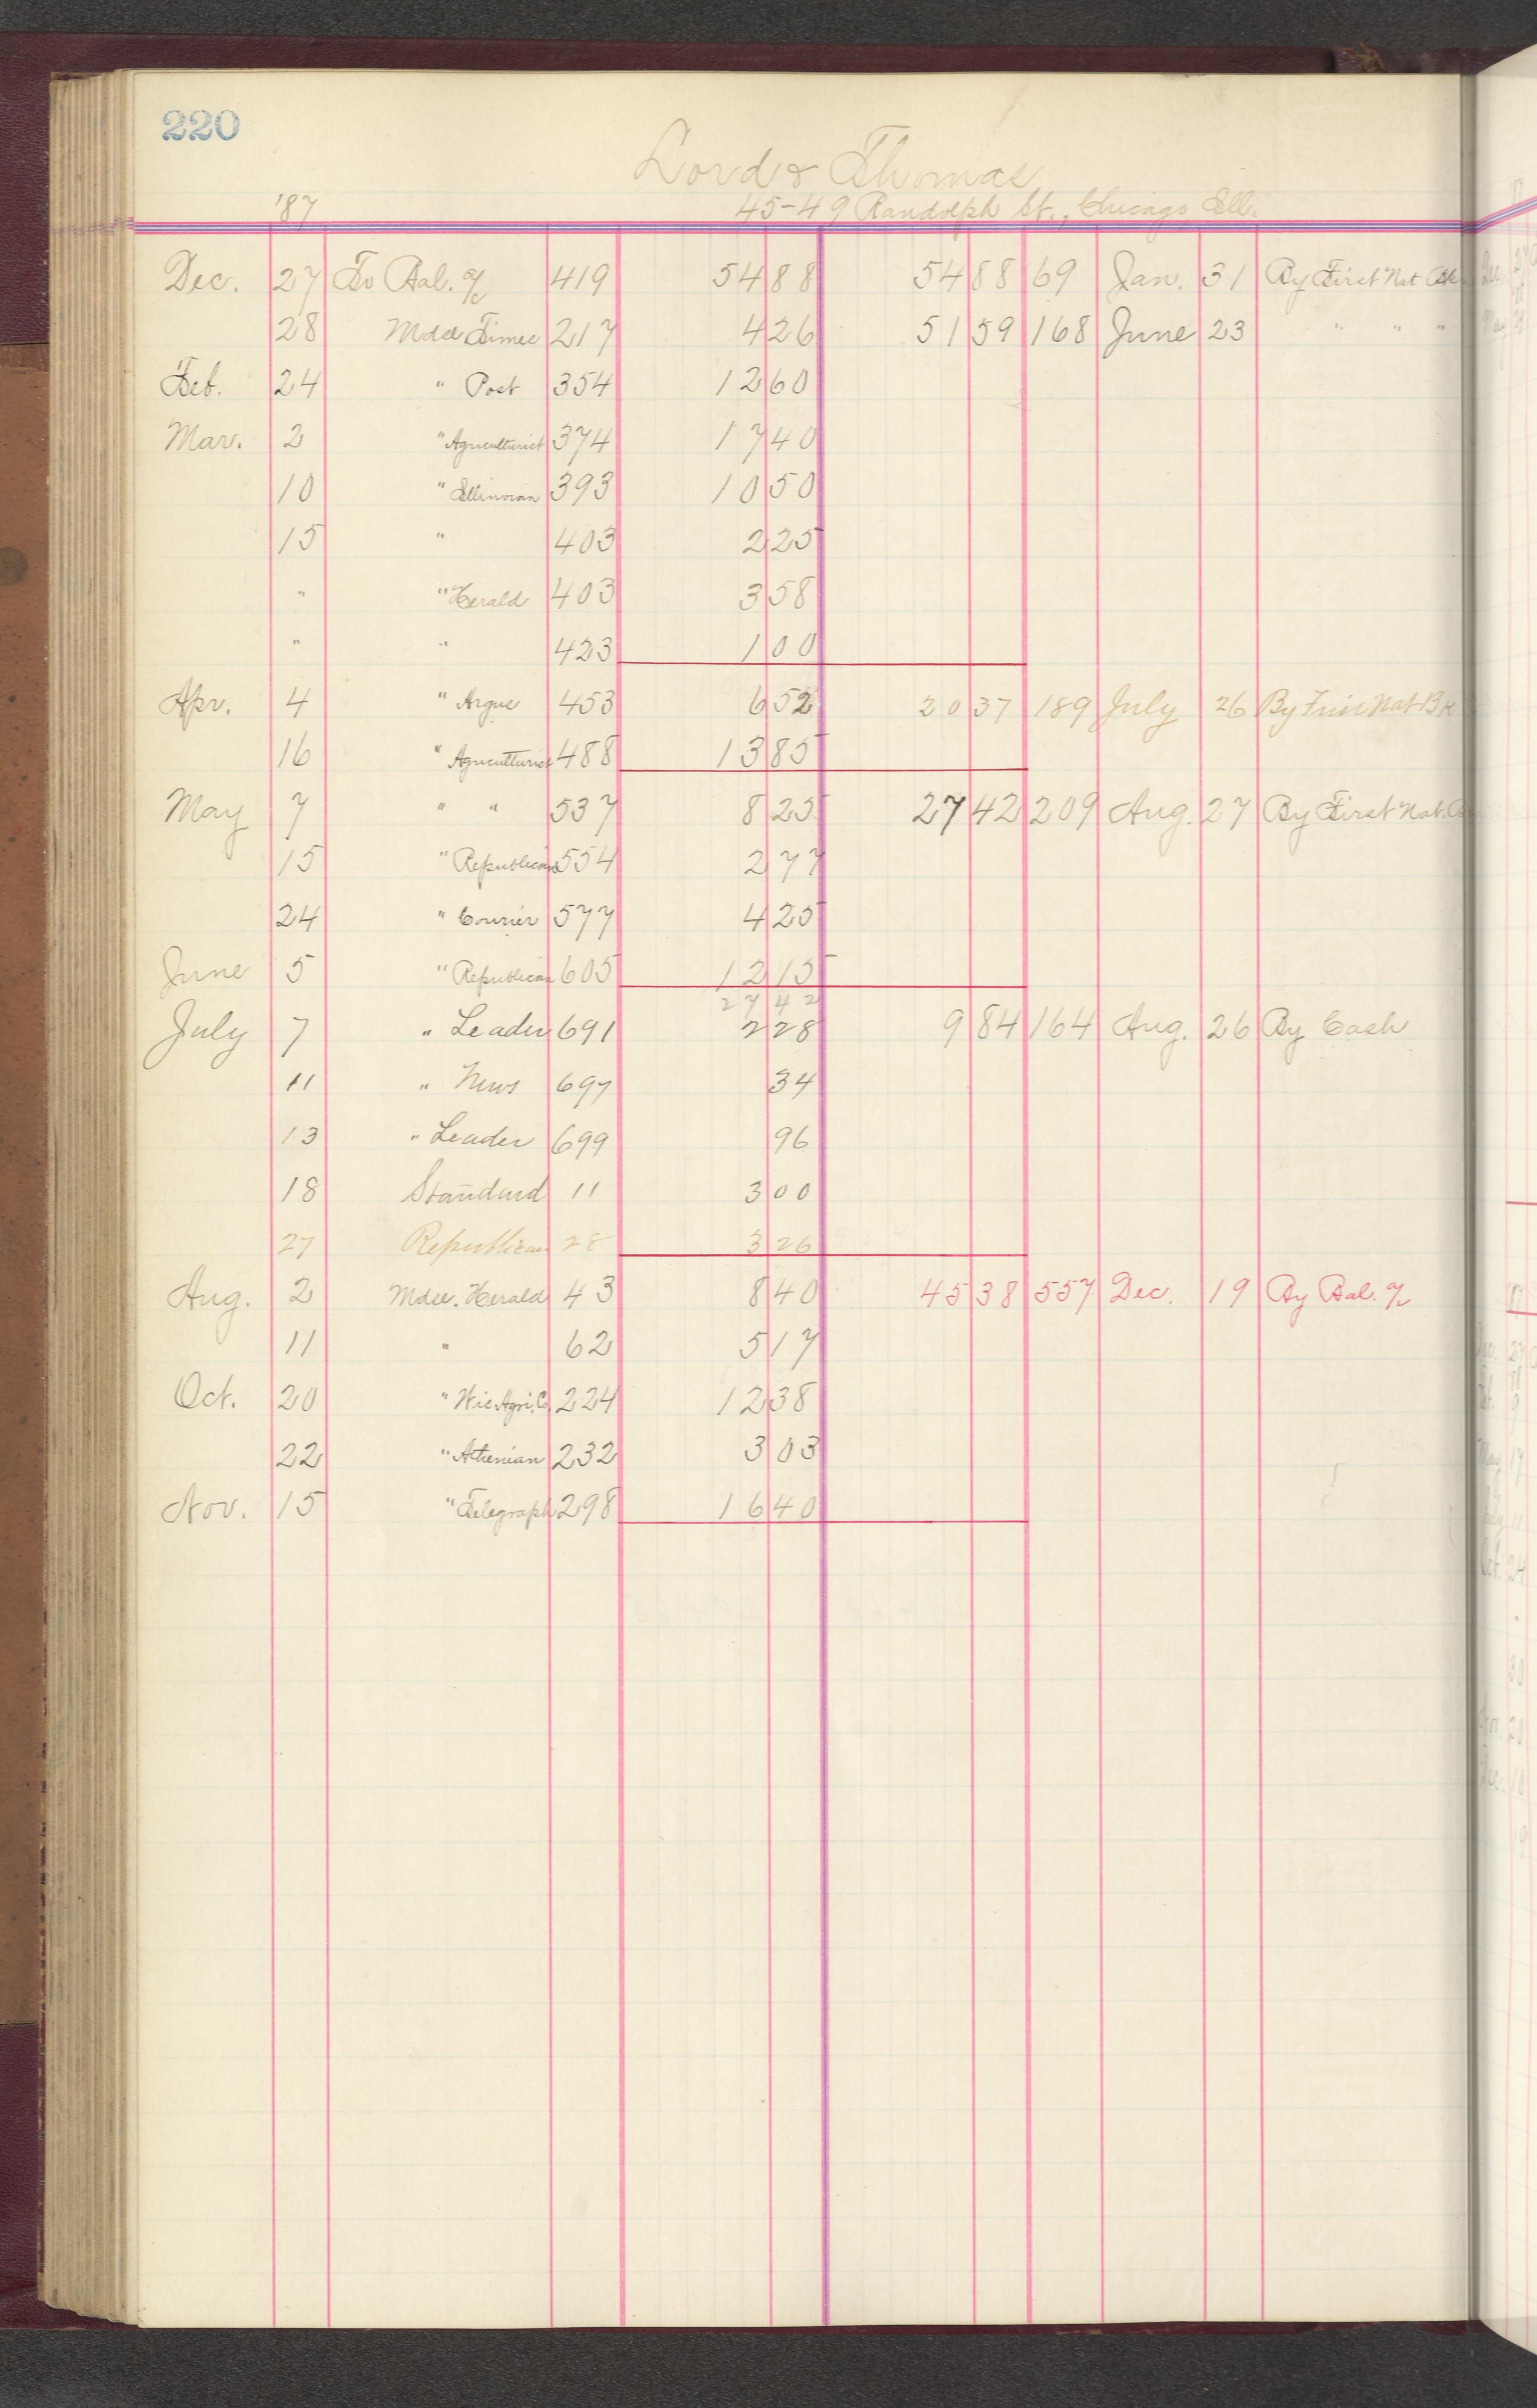 220
Lord & Thomas
'87 45-49 Randolph St., Chicago Ill.
Dec. 27 To Bal. a/c 419 54 88 54 88 69 Jan. 31 By First Nat Bk
28 Mdse Times 217 4 26 51 59 168 June 23 " " "
Feb. 24 " Post 354 12 60
Mar. 2 " Agriculturist 374 17 40
10 " Illinoian 393 10 50
15 " 403 2 25
" " Herald 403 3 58
" " 423 1 00
Apr. 4 " Argue 453 6 52 20 37 189 July 26 By First Nat Bk
16 " Agriculturist 488 13 85
May 7 " " 537 8 25 27 42 209 Aug. 27 By First Nat.
15 " Republican 554 2 77
24 " Courier 577 4 25
June 5 " Republican 605 12 15
27 42
July 7 " Leader 691 2 28 9 84 164 Aug. 26 By Cash
11 " News 697 34
13 " Leader 699 96
18 Standard 11 3 00
27 Republican 28 3 26
Aug. 2 Mdse. Herald 43 8 40 45 38 557 Dec. 19 By Bal. a/c
11 " 62 5 17
Oct. 20 " Wis Agri. Co. 224 12 38
22 " Athenian 232 3 03
Nov. 15 " Telegraph 298 16 40